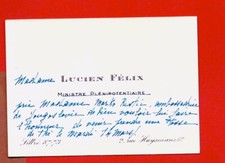 Madame
LUCIEN FÉLIX
MINISTRE PLÉNIPOTENTIAIRE
prie Madame Marko Ristić, ambassadrice
de Yougoslavie de bien vouloir lui faire
l'honneur de venir prendre une tasse
de thé le Mardi 14 Mars
Littré 57-73
2, rue Huysmans 6e